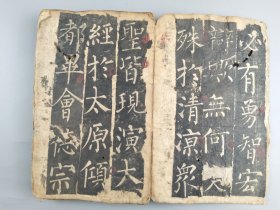 必有勇智宏
辯歟無何
殊於清涼衆
聖皆現演大
經於太原傾
都畢會德宗